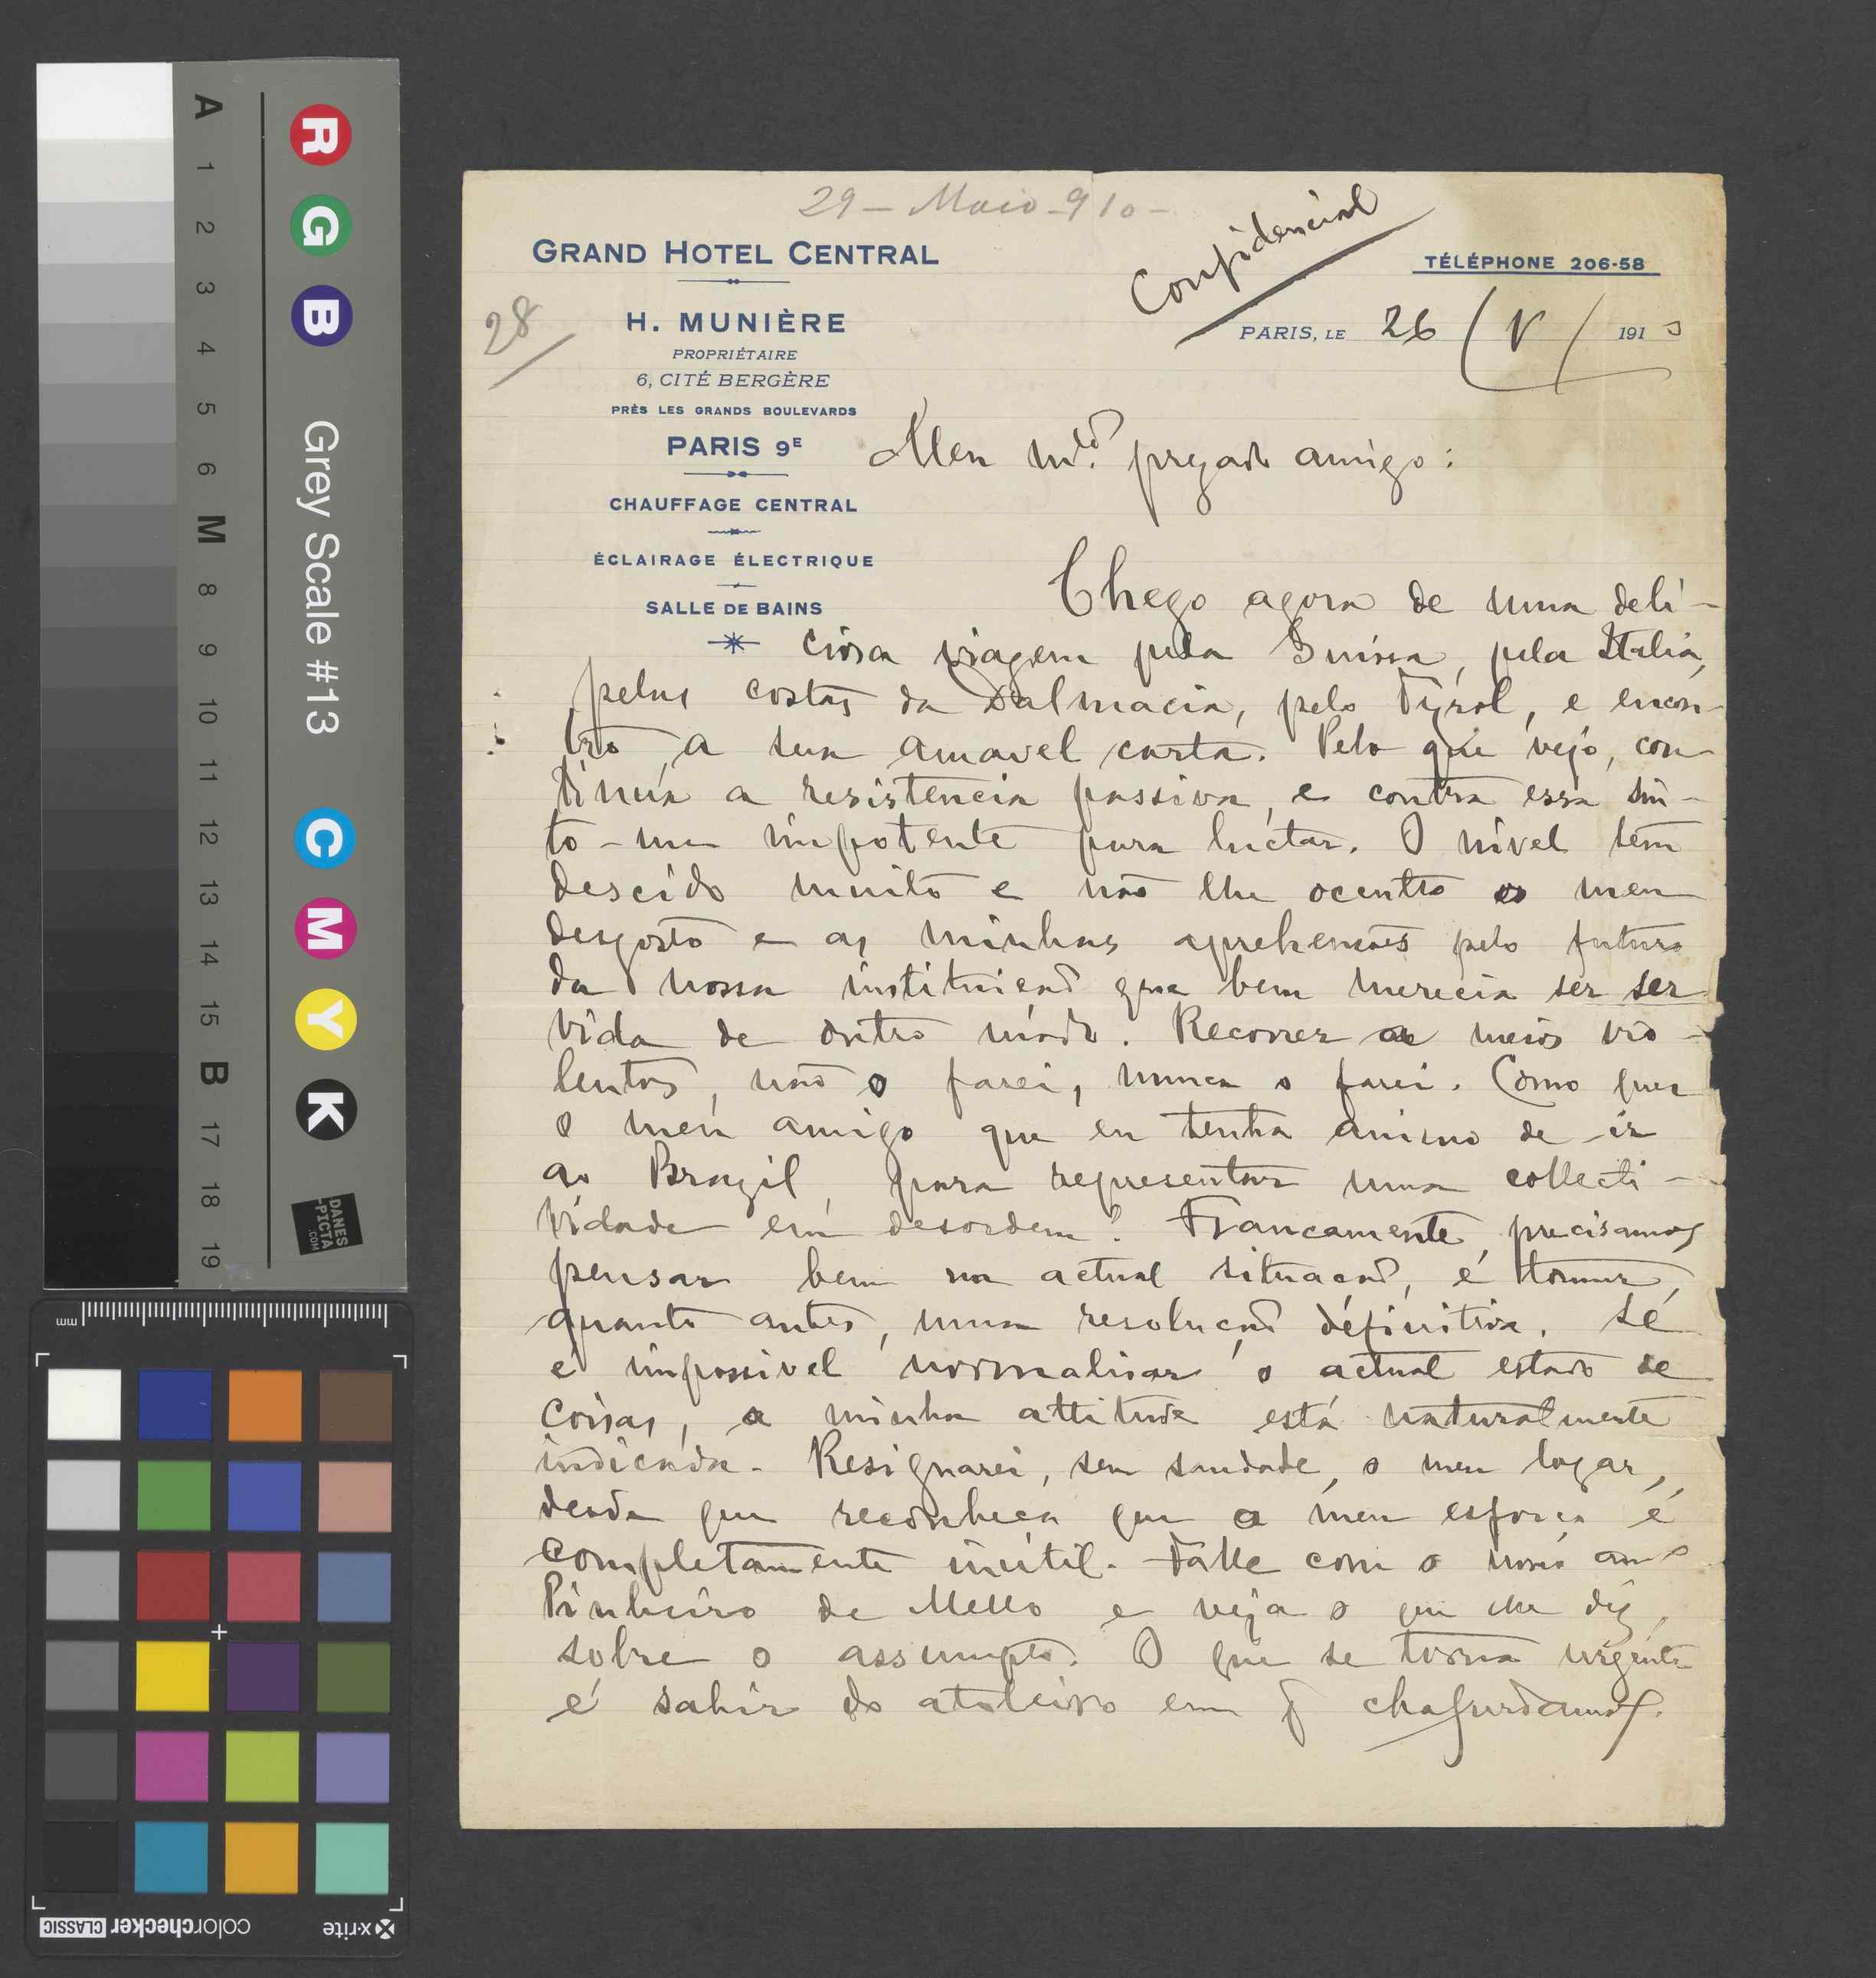 29 — Maio - 910 —
Confidencial
GRAND HOTEL CENTRAL
TÉLÉPHONE 206-58
28
H. MUNIÈRE
PROPRIÉTAIRE
6, CITÉ BERGÈRE
PRÈS LES GRANDS BOULEVARDS
PARIS 9E
CHAUFFAGE CENTRAL
ÉCLAIRAGE ÉLECTRIQUE
SALLE DE BAINS
PARIS, LE 26 / V / 1910
Meu m.to prezado amigo:
Chego agora de uma deli-
ciosa viagem pela Suissa, pela Italia,
pelas costas da Dalmacia, pelo Tyrol, e encon-
tro a sua amavel carta. Pelo que vejo, con-
tinúa a resistencia passiva, e contra essa sin-
to-me impotente para luctar. O nivel tem
descido muito e não lhe occulto o meu
desgosto e as minhas aprehensões pelo futuro
da nossa instituição que bem merecia ser ser
vida de outro modo. Recorrer a meios vio-
lentos, não o farei, nunca o farei. Como quer
o meu amigo que eu tenha animo de ir
ao Brazil, para representar uma collecti-
vidade em desordem? Francamente, precisamos
pensar bem na actual situação, e tomar,
quanto antes, uma resolução definitiva. Se
é impossivel normalisar o actual estado de
coisas, a minha attitude está naturalmente
indicada. Resignarei, sem saudade, o meu logar,
desde que reconheça que o meu esforço é
completamente inútil. Falle com o nosso amo
Pinheiro de Mello e veja o que elle diz
sobre o assumpto. O que se torna urgente
é sahir do atoleiro em q chafurdamos.
A 1 2 3 4 5 6 M 8 9 10 11 12 13 14 15 B 17 18 19
R G B Grey Scale #13 C M Y K
DANES
-PICTA
.COM
mm
x-rite
colorchecker CLASSIC